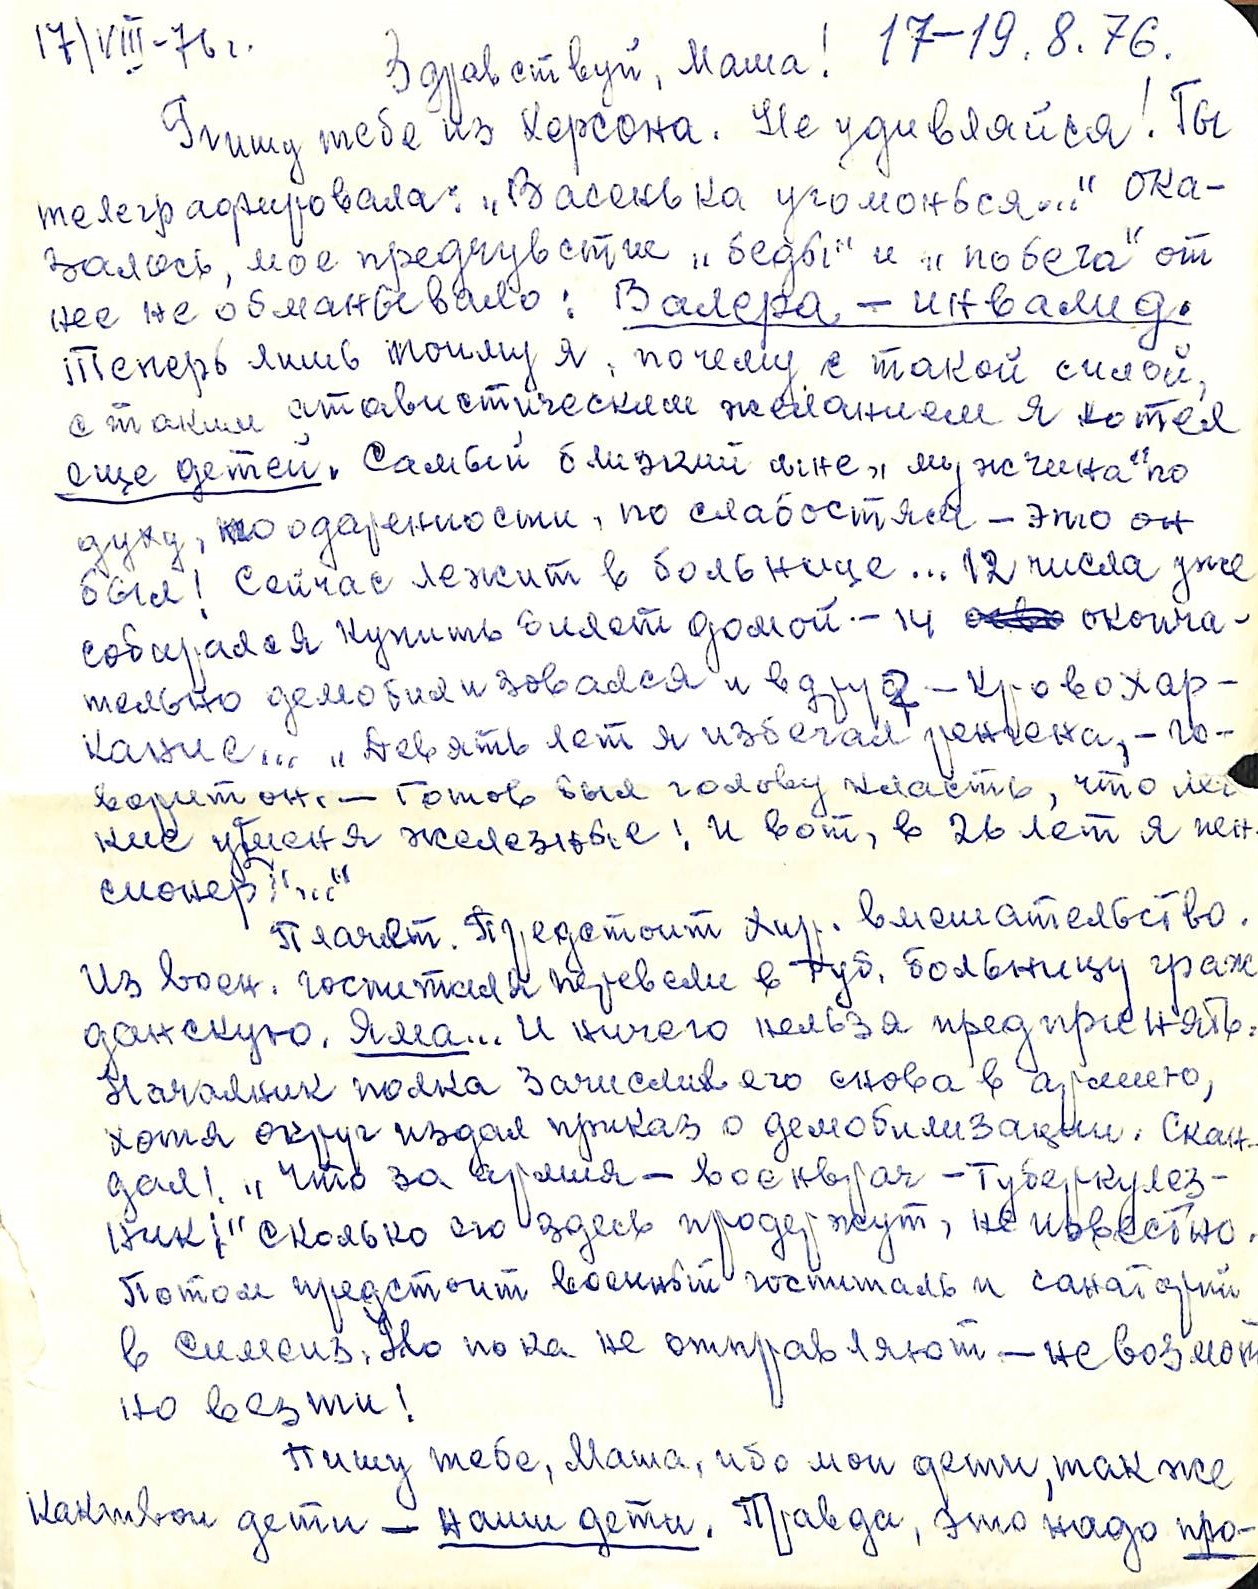 17/VIII-76 г.
17–19.8.76.
Здравствуй, Маша!
Пишу тебе из Херсона. Не удивляйся! Ты
телеграфировала: „Васенька угомонься..." Ока-
залось, мое предчувствие „беды" и „побега" от
нее не обманывало: Валера – инвалид.
Теперь лишь пойму я, почему с такой силой,
с таким атавистическим желанием я хотел
еще детей. Самый близкий мне „мужчина" по
духу, по одаренности, по слабостям – это он
был! Сейчас лежит в больнице... 12 числа уже
собирался купить билет домой – 14 оконча-
тельно демобилизовался и вдруг – кровохар-
кание... „Девять лет я избегал рентгена, – го-
ворит он. – Готов был голову класть, что лег
кие у меня железные! И вот, в 26 лет я пен-
сионер!"..."
Плачет. Предстоит хир. вмешательство.
Из воен. госпиталя перевели в туб. больницу граж
данскую. Яма... И ничего нельзя предпринять.
Начальник полка зачислил его снова в армию,
хотя округ издал приказ о демобилизации. Скан-
дал! „Что за армия – военврач – туберкулез-
ник!" Сколько его здесь продержут, не известно.
Потом предстоит военный госпиталь и санаторий
в Симеиз. Но пока не отправляют – не возмож
но везти!
Пишу тебе, Маша, ибо мои дети, так же
как твои дети – наши дети. Правда, это надо про-